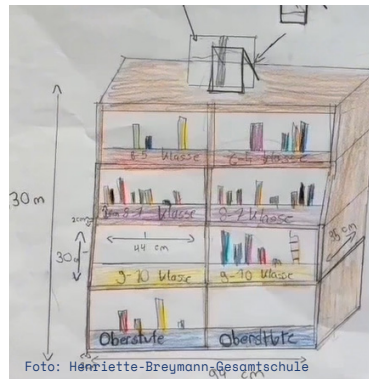 6-5 Klasse
6-5 Klasse
30m
8-7 Klasse
8-7 Klasse
44 cm
35 cm
30
9-10 Klasse
9-10 Klasse
Oberstufe
Oberstufe
94 cm
Foto: Henriette-Breymann-Gesamtschule